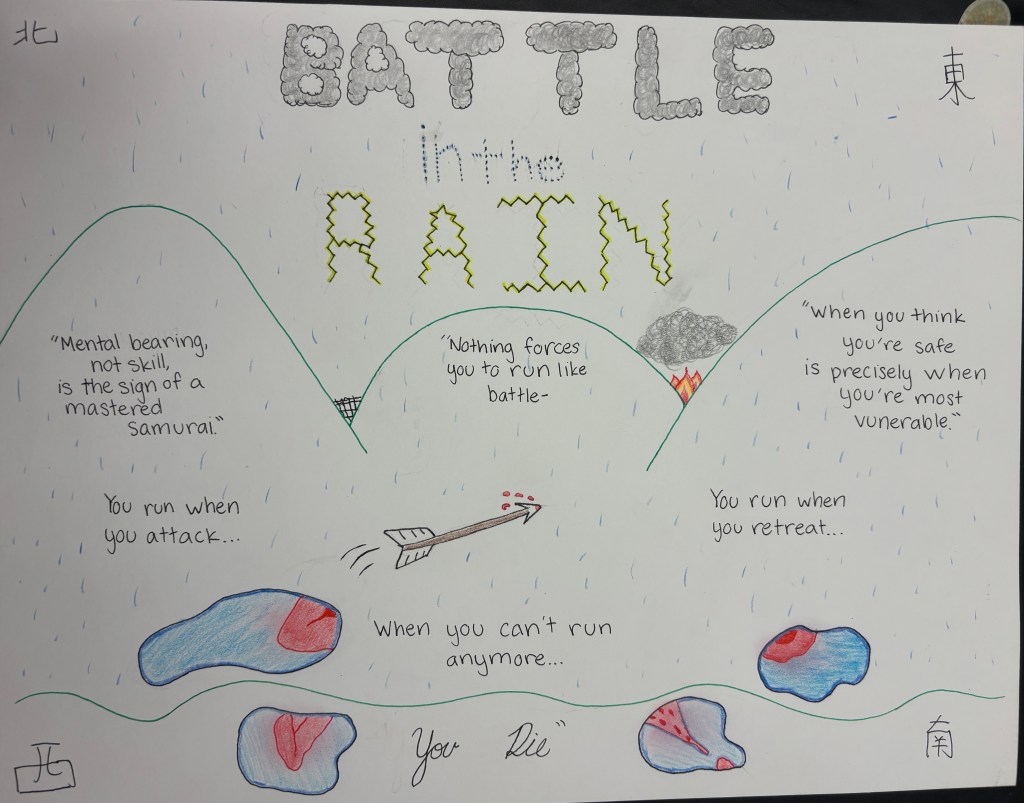 北
BATTLE
東
in the
RAIN
"Mental bearing,
not skill,
is the sign of a
mastered
samurai."
"Nothing forces
you to run like
battle-
"When you think
you're safe
is precisely when
you're most
vunerable."
You run when
you attack...
You run when
you retreat...
When you can't run
anymore...
西
You Die"
南